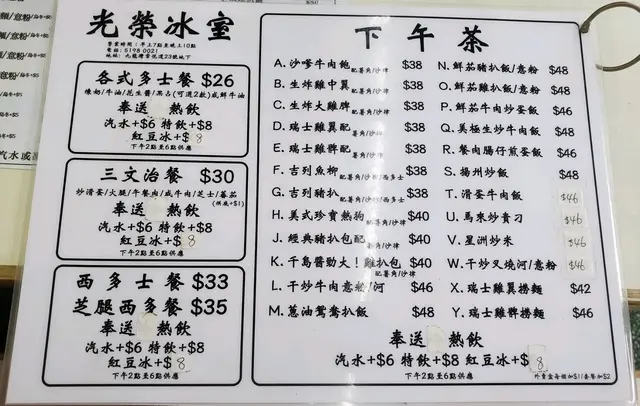 光榮冰室
營業時間：早上7點至晚上10點
電話：5198 0021
各式多士餐 $26
煉奶/牛油/花生醬/果占(可選2款)或鮮牛油
奉送 熱飲
汽水+$6 特飲+$8
紅豆冰+$8
下午2點至6點供應
三文治餐 $30
炒滑蛋/火腿/午餐肉/咸牛肉/芝士/蕃茄
(烘底+$1)
奉送 熱飲
汽水+$6 特飲+$8
紅豆冰+$8
下午2點至6點供應
西多士餐 $33
芝腿西多餐 $35
奉送 熱飲
汽水+$6 特飲+$8
紅豆冰+$8
下午2點至6點供應
下午茶
A. 沙嗲牛肉飽配薯角/沙律 $38
B. 生炸雞中翼 $38
C. 生炸大雞髀 $38
D. 瑞士雞翼配薯角/沙律 $38
E. 瑞士雞髀配薯角/沙律 $38
F. 吉列魚柳配薯角/沙律/西多士 $38
G. 吉列豬扒配薯角/沙律/西多士 $38
H. 美式珍寶熱狗配薯角/沙律 $40
J. 經典豬扒包配薯角/沙律 $40
K. 千島醬勁大！雞扒包配薯角/沙律 $40
L. 干炒牛肉意粉/河 $46
M. 蔥油鴛鴦扒飯 $48
N. 鮮茄豬扒飯/意粉 $48
O. 鮮茄雞扒飯/意粉 $48
P. 鮮茄牛肉炒蛋飯 $46
Q. 美極生炒牛肉飯 $48
R. 餐肉腸仔煎蛋飯 $46
S. 揚州炒飯 $48
T. 滑蛋牛肉飯 $46
U. 馬來炒貴刁 $46
V. 星洲炒米 $46
W. 干炒叉燒河/意粉 $46
X. 瑞士雞翼撈麵 $42
Y. 瑞士雞髀撈麵 $46
奉送 熱飲
汽水+$6 特飲+$8 紅豆冰+$8
下午2點至6點供應
外賣盒每個加$1/套餐加$2